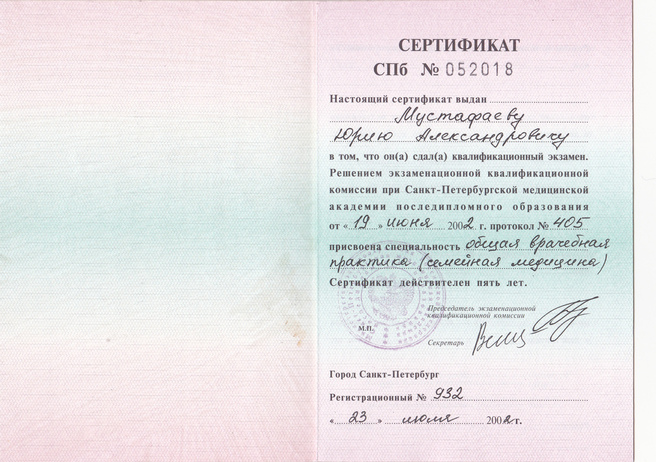 СЕРТИФИКАТ
СПб № 052018
Настоящий сертификат выдан
Мустафаеву
Юрию Александровичу
в том, что он(а) сдал(а) квалификационный экзамен.
Решением экзаменационной квалификационной
комиссии при Санкт-Петербургской медицинской
академии последипломного образования
от «19» июня 2002 г. протокол № 405
присвоена специальность общая врачебная
практика (семейная медицина)
Сертификат действителен пять лет.
Председатель экзаменационной
квалификационной комиссии
М.П.
Секретарь
Город Санкт-Петербург
Регистрационный № 932
«23» июля 2002 г.